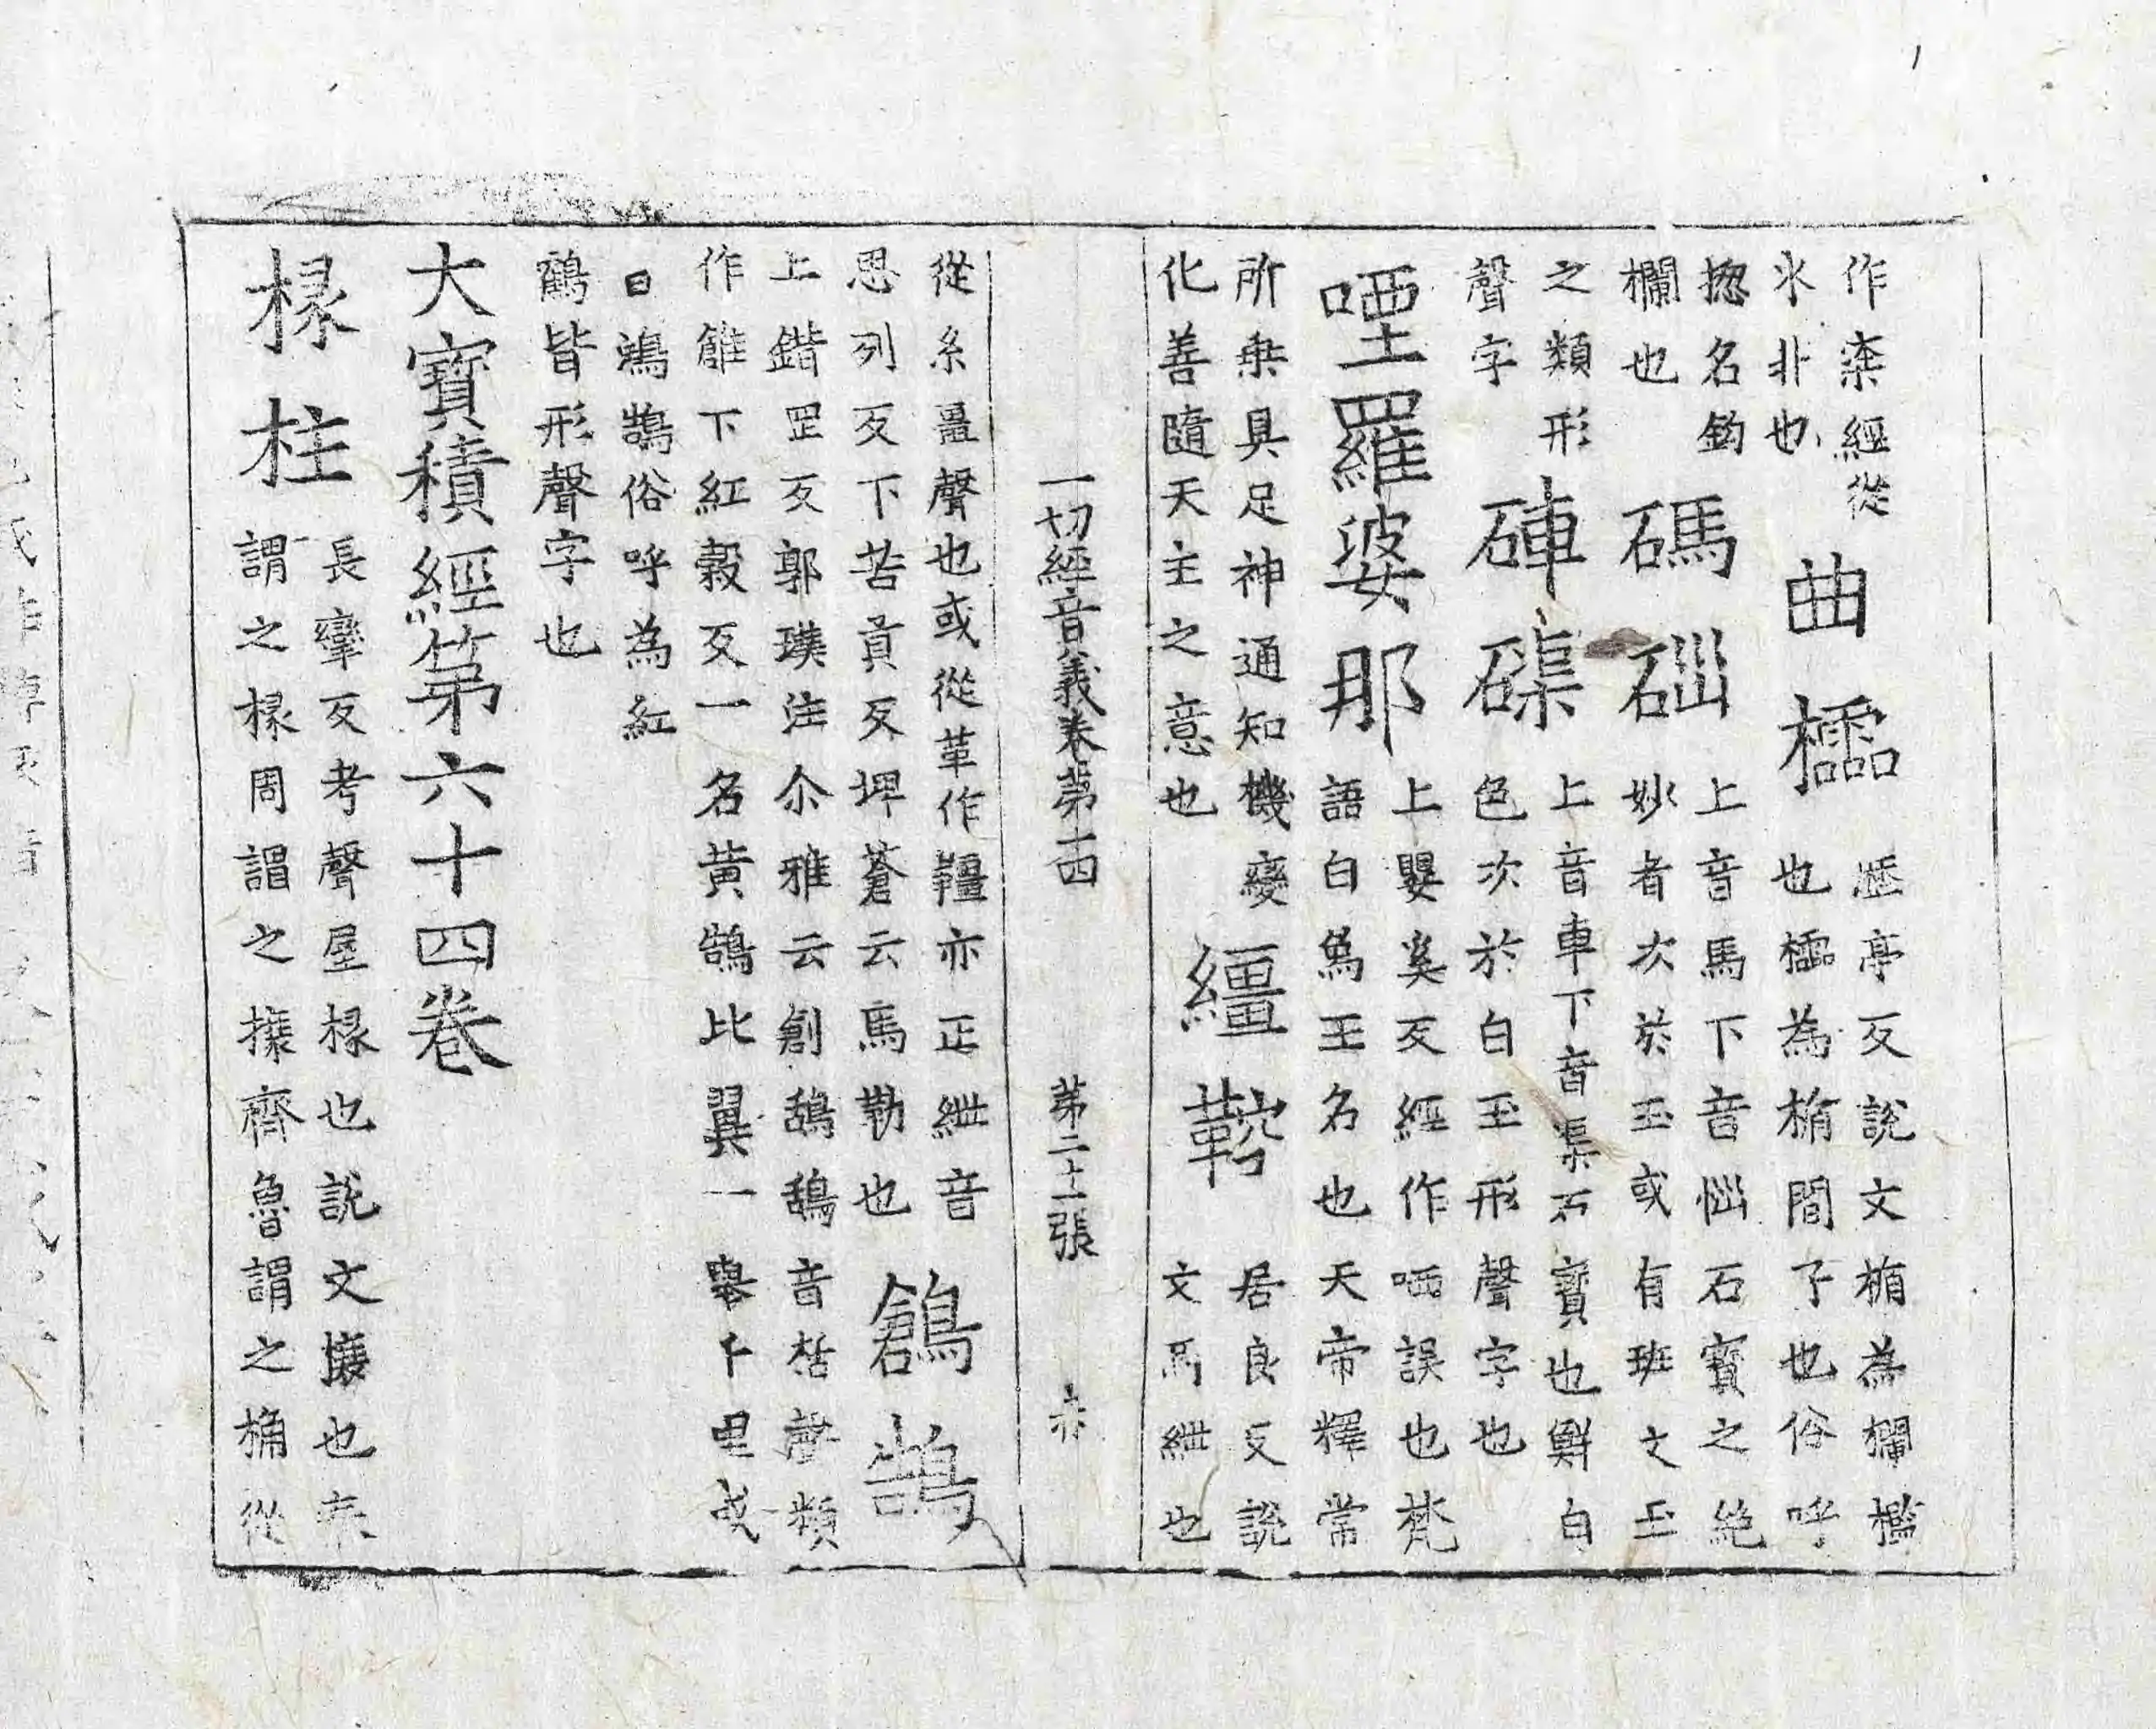 作桼經從
氺非也
曲櫺
歴亭反說文楯為欄檻
也櫺為楯間子也俗呼
揔名鈎
欄也
碼碯
上音馬下音惱石寶之絶
妙者次於玉或有班文玉
之類形
聲字
硨磲
上音車下音渠石寶也鮮白
色次於白玉形聲字也
㖶羅婆那
上嬰奚反經作哂誤也梵
語白為王名也天帝釋常
所乗具足神通知機變
化善隨天主之意也
繮鞚
居良反說
文馬紲也
一切經音義卷第十四 第二十一張 赤
從糸畺聲也或從革作韁亦正紲音
思列反下苦貢反埤蒼云馬勒也
鶬鵠
上錯罡反郭璞注尒雅云創鴰鴰音栝聲類
作下紅穀反一名黄鵠比翼一舉千里或
曰鴻鵠俗呼為紅
鶴皆形聲字也
大寶積經第六十四卷
椽柱
長攣反考聲屋椽也説文榱也秦
謂之椽周謂之榱齊魯謂之桷從